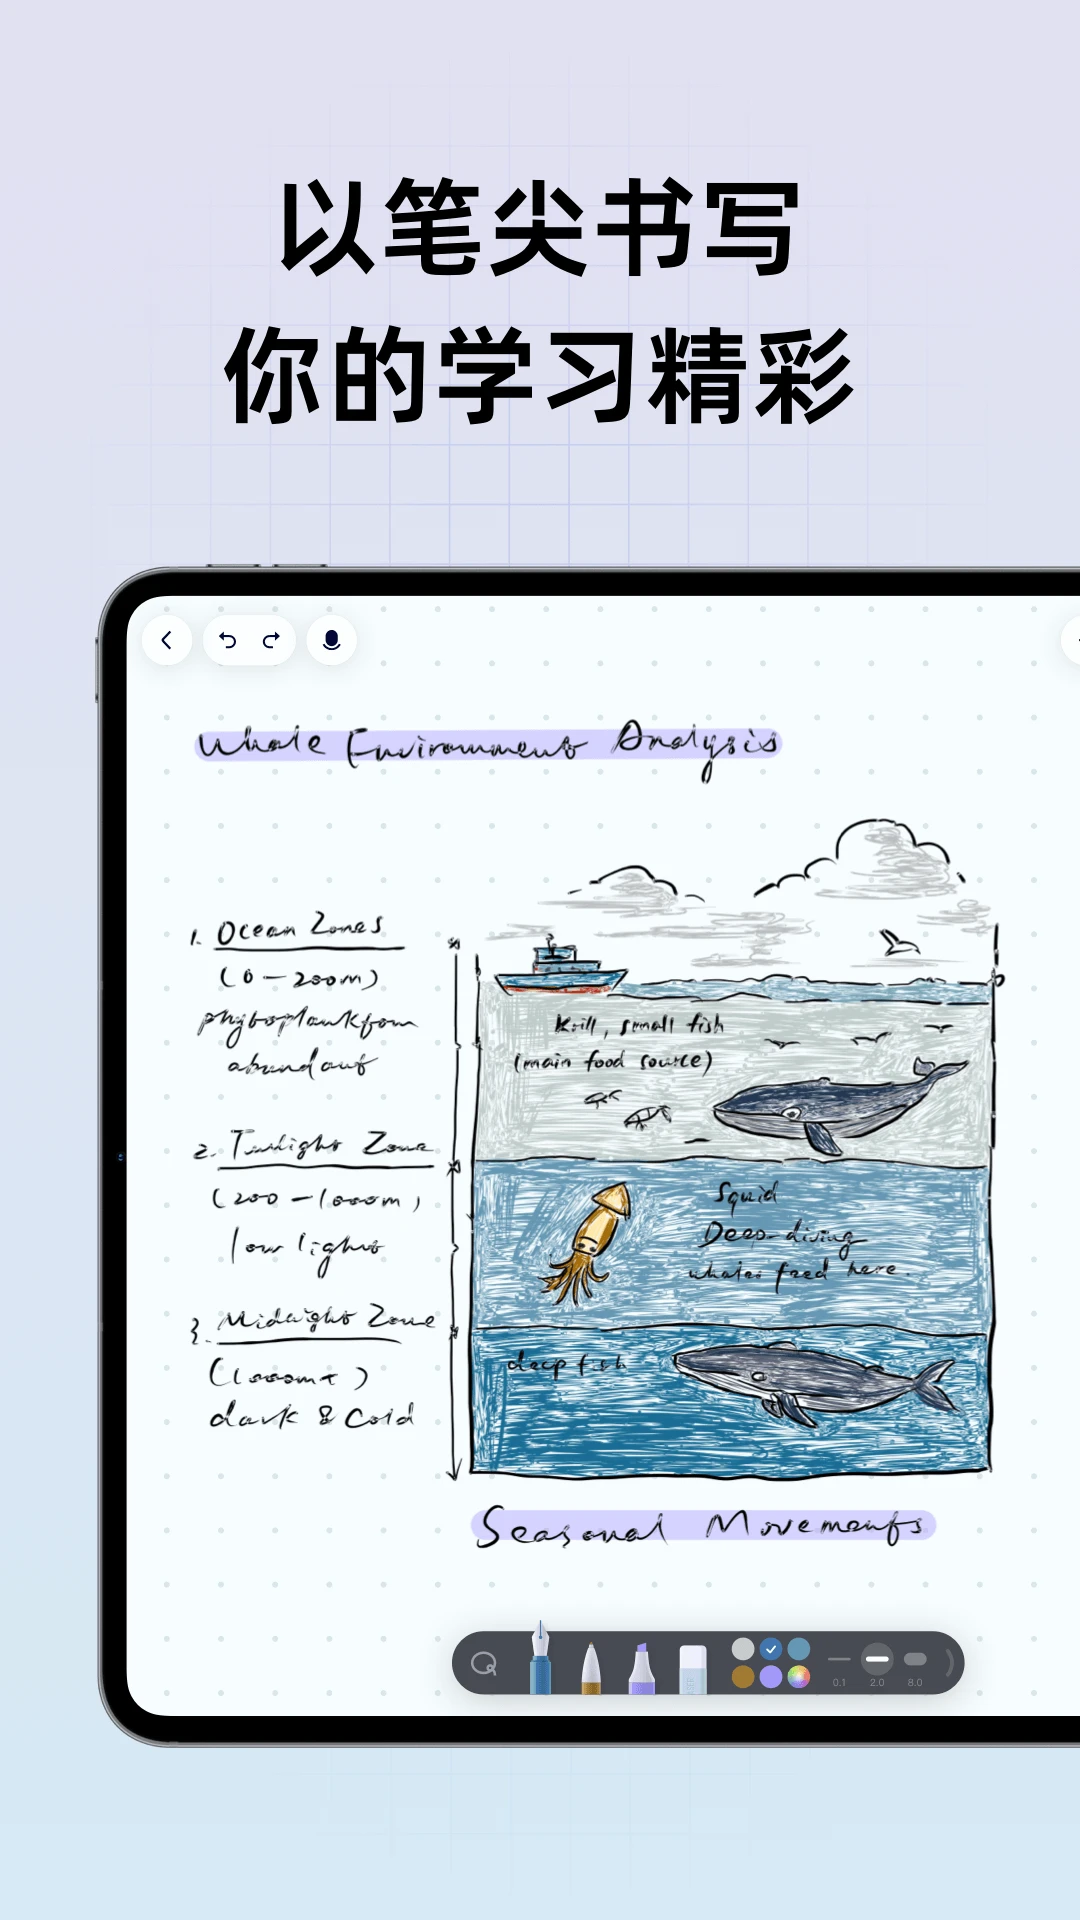 以笔尖书写
你的学习精彩
Whale Environment Analysis
1. Ocean Zones
(0-200m)
phytoplankton
abundant
2. Twilight Zone
(200-1000m)
low light
3. Midnight Zone
(1000m+)
dark & Cold
Krill, small fish
(main food source)
Squid
Deep-diving
whales feed here.
deep fish
Seasonal Movements
0.1 2.0 8.0